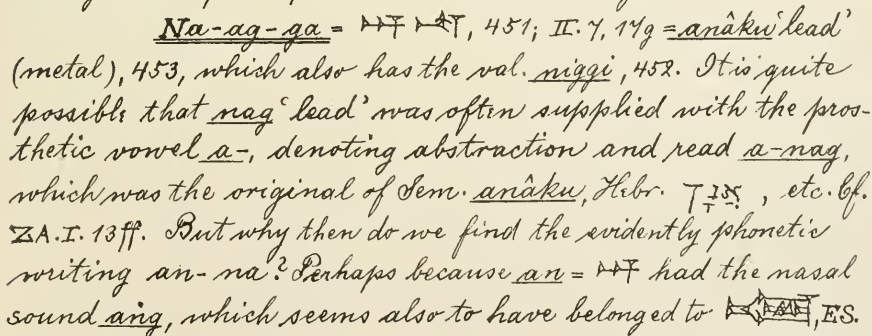 Na-ag-ga = 𒀭 𒈾, 451; II. 7, 17g = anâku ‘lead’
(metal), 453, which also has the val. niggi, 452. It is quite
possible that nag ‘lead’ was often supplied with the pros-
thetic vowel a-, denoting abstraction and read a-nag,
which was the original of Sem. anâku, Hebr. אֲנָךְ, etc. Cf.
ZA. I. 13 ff. But why then do we find the evidently phonetic
writing an-na? Perhaps because an = 𒀭 had the nasal
sound ang, which seems also to have belonged to , ES.